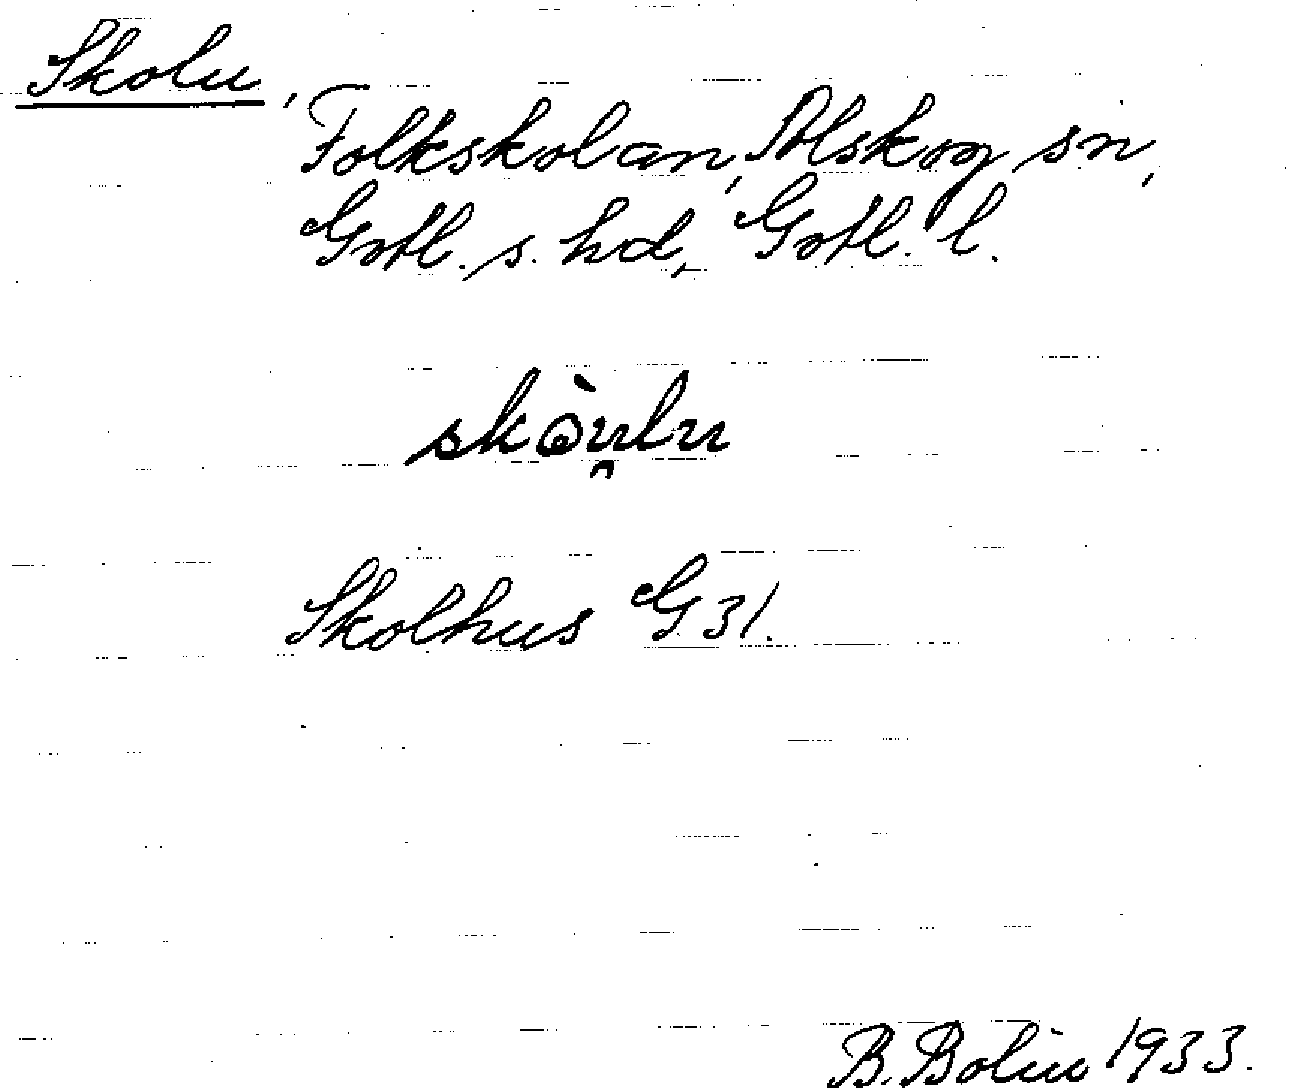 Skolu,
Folkskolan, Alskog sn,
Gotl. s. hd, Gotl. l.
skòu̯lu
Skolhus G 31.
B. Bolin 1933.